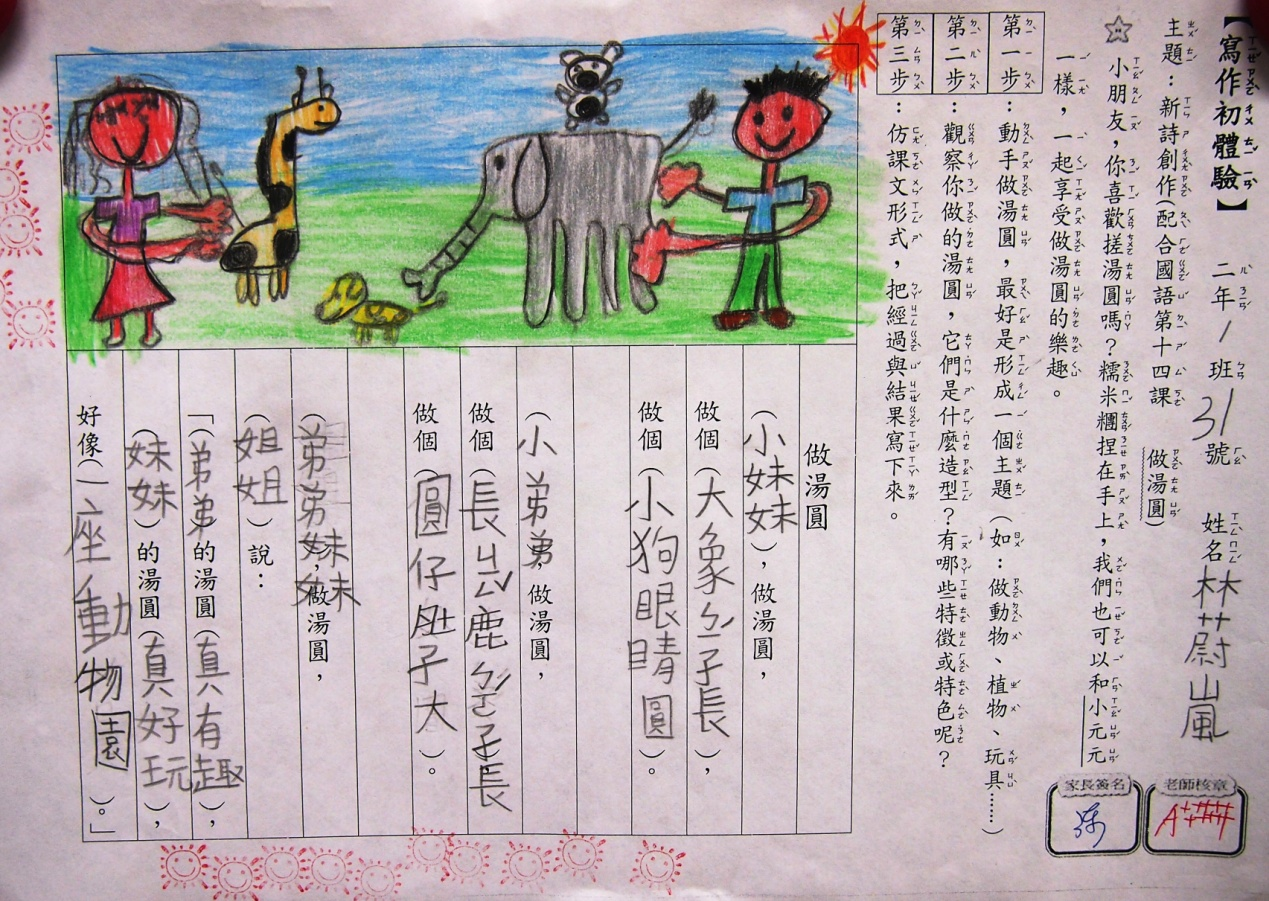 【寫作初體驗】 二年1班31號 姓名林蔚嵐
主題：新詩創作(配合國語第十四課 做湯圓)
☆小朋友，你喜歡搓湯圓嗎？糯米糰捏在手上，我們也可以和小元元
一樣，一起享受做湯圓的樂趣。
第一步：動手做湯圓，最好是形成一個主題（如：做動物、植物、玩具……）
第二步：觀察你做的湯圓，它們是什麼造型？有哪些特徵或特色呢？
第三步：仿課文形式，把經過與結果寫下來。
家長簽名
老師核章
A++
做湯圓
（小妹妹），做湯圓，
做個（大象ㄅㄧˊ子長），
做個（小狗眼睛圓）。
（小弟弟，做湯圓，
做個（長ㄐㄧㄥˇ鹿ㄅㄛˊ子長
做個（圓仔肚子大）。
（弟弟妹妹，做湯圓，
（姐姐）說：
「（弟弟的湯圓（真有趣），
（妹妹）的湯圓（真好玩），
好像（一座動物園）。」